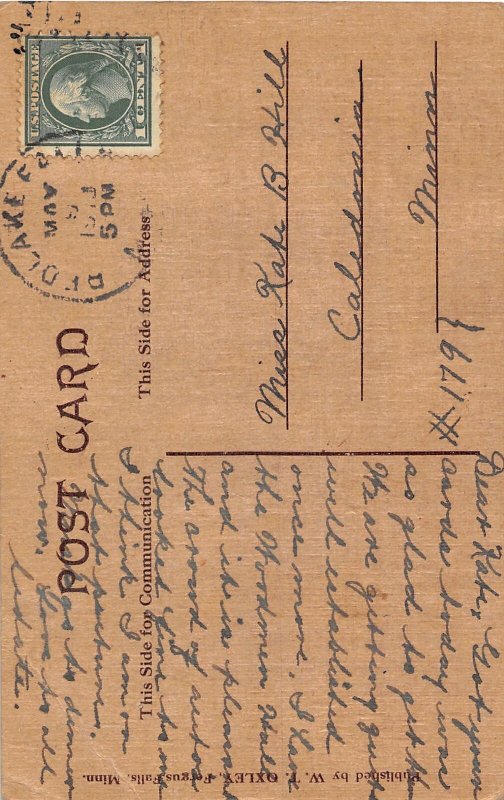 POST CARD
This Side for Communication
This Side for Address
Published by W. T. OXLEY, Fergus Falls, Minn.
U.S. POSTAGE
1 CENT 1
MAY
9
5 PM
Miss Kate B Hill
Caledonia
Minn
#1191}
Dear Kate, Got your
cards today was
so glad to get them
We are getting quite
will established
once more. I have
the Woodmen Hall
and it is pleasant
The crowd of autos
looked fine to me
I think I am on
that picture.
as to dinner
now. Love to all